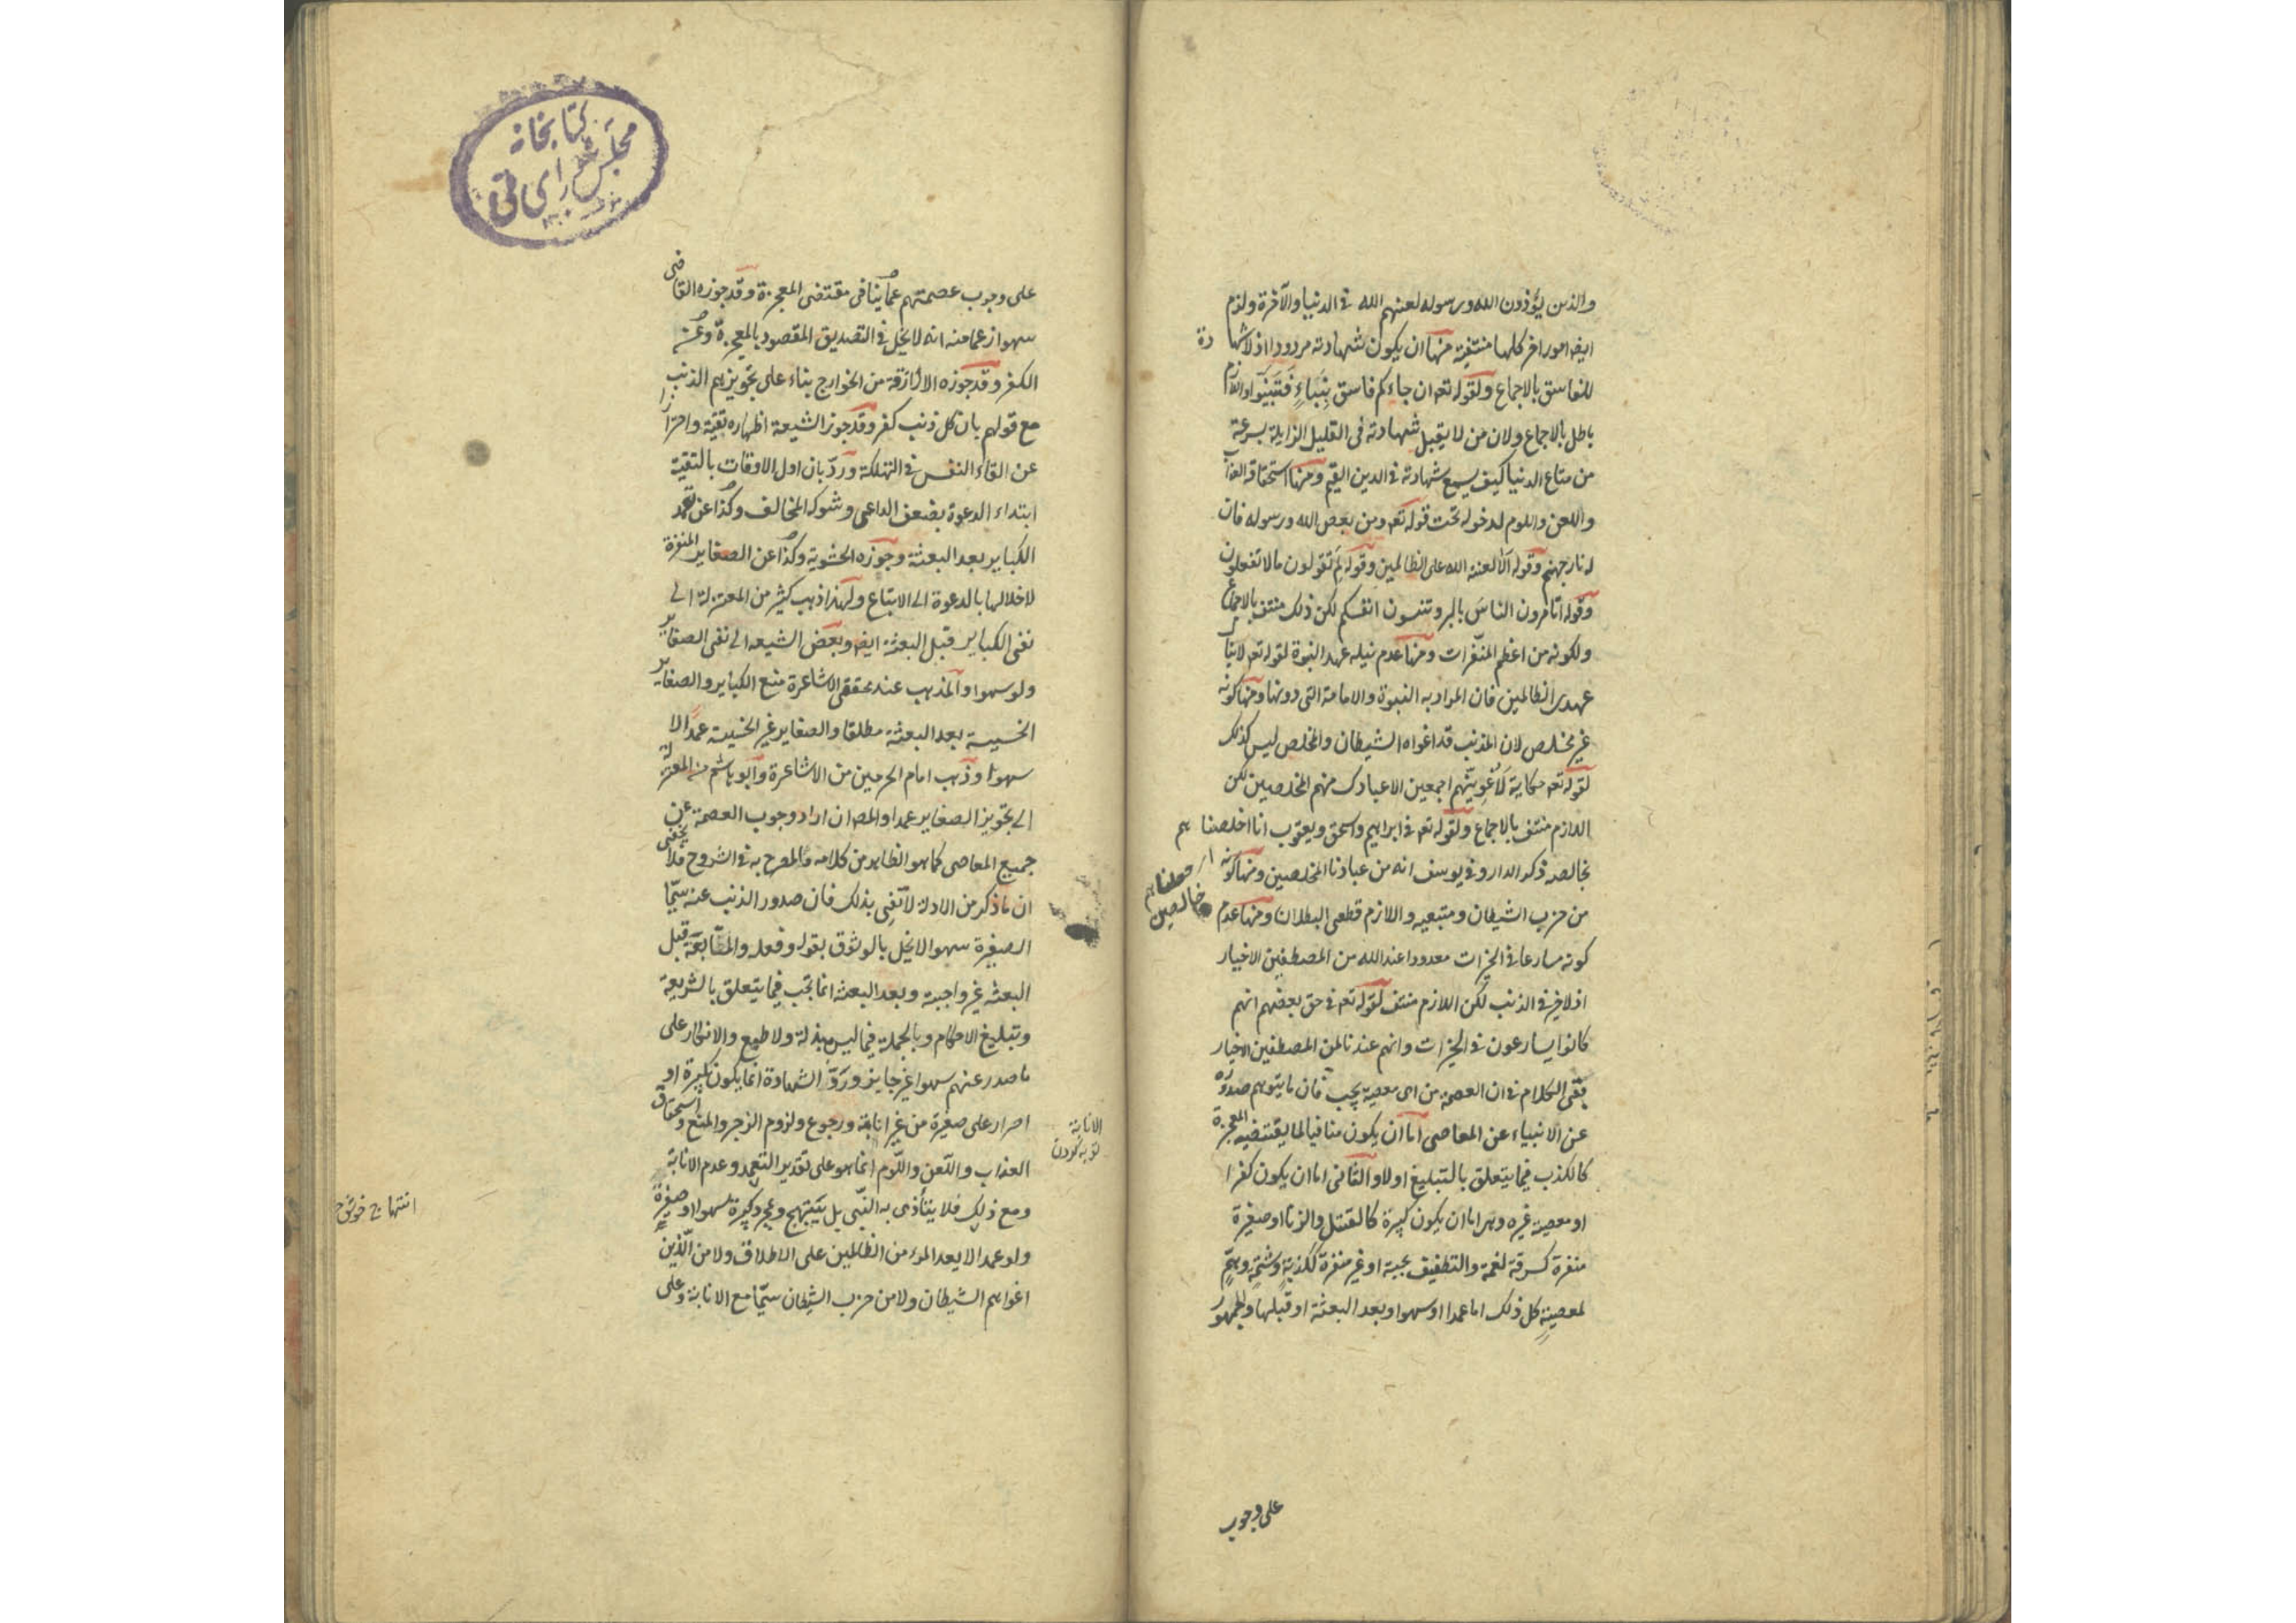 والذين يؤذون الله ورسوله لعنهم الله في الدنيا والآخرة ولزم
ايضا امور اخر كلها منتفية منها ان يكون شهادته مردودا اذ لا شهادة
للفاسق بالاجماع ولقوله تعه ان جاءكم فاسق بِنَبَاءٍ فَتَبَيَّنَوا واللازم
باطل بالاجماع ولان من لا يقبل شهادته فى القليل الزايلة بسرعة
من متاع الدنيا كيف يسمع شهادته في الدين القيم ومنها استحقاقه العذاب
واللعن واللوم لدخوله تحت قوله تعه ومن يعص الله ورسوله فان
له نار جهنم وقوله الا لعنة الله على الظالمين وقوله لِمَ تقولون ما لا تفعلون
وقوله اتامرون الناسَ بالبر وتنسون انفسكم لكن ذلك منتف بالاجماع
ولكونه من اعظم المنفّرات ومنها عدم نيله عهد النبوة لقوله تعه لا ينال
عهدى الظالمين فان المراد به النبوة والامامة التى دونها ومنها كونه
غير مخلص لان المذنب قد اغواه الشيطان والمخلص ليس كذلك
لقوله تعه حكاية لَاُغْوِيَنَّهم اجمعين الا عبادك منهم المخلصين لكن
اللازم منتف بالاجماع ولقوله تعه في ابراهيم واسحق ويعقوب انا اخلصناهم
بخالصه ذكر الدار وفي يوسف انه من عبادنا المخلصين ومنها كونه
اى جعلناهم
خالصين
من حزب الشيطان ومتبعيه واللازم قطعى البطلان ومنها عدم
كونه مسارعا في الخيرات معدودا عند الله من المصطفين الاخيار
اذ لا خير في الذنب لكن اللازم منتف لقوله تعه في حق بعضهم انهم
كانوا يسارعون في الخيرات وانهم عندنا لمن المصطفين الاخيار
بقى الكلام في ان العصمة من اى معصية يجب فان ما يتوهم صدوره
عن الانبياء عن المعاصى اما ان يكون منافيا لما يقتضيه المعجزة
كالكذب فيما يتعلق بالتبليغ اولا والثانى اما ان يكون كفرا
او معصية غيره وهى اما ان يكون كبيرة كالقتل والزنا او صغيرة
منفرة كسرقة لقمة والتطفيف بحبة او غير منفرة ككذبةٍ وشتمةٍ وهمٍّ
لمعصيةٍ كل ذلك اما عمدا او سهوا وبعد البعثة او قبلها والجمهور
على وجوب
كتابخانه
مجلس شوراى ملى
على وجوب عصمتهم عما ينافى مقتضى المعجزة وقد جوزه القاضى
سهوا زعما منه انه لا يخل في التصديق المقصود بالمعجزة وعن
الكفر وقد جوزه الازارقة من الخوارج بناء على تجويزهم الذنب
مع قولهم بان كل ذنب كفر وقد جوز الشيعة اظهاره تقية واحترازا
عن القاء النفس في التهلكة وردّ بان اول الاوقات بالتقية
ابتداء الدعوة بضعف الداعى وشوكة المخالف وكذا عن تعمد
الكباير بعد البعثة وجوزه الحشوية وكذا عن الصغاير المنفرة
لاخلالها بالدعوة الى الاتباع ولهذا ذهب كثير من المعتزلة الى
نفى الكباير قبل البعثة ايضا وبعض الشيعه الى نفى الصغاير
ولو سهوا والمذهب عند محققى الاشاعرة منع الكباير والصغاير
الخسيسة بعد البعثة مطلقا والصغاير غير الخسيسة عمداً لا
سهوا وذهب امام الحرمين من الاشاعرة وابو هاشم من المعتزلة
الى تجويز الصغاير عمدا والمص ان اراد وجوب العصمة عن
جميع المعاصى كما هو الظاهر من كلامه والمصرح به في الشروح فلا يخفى
ان ما ذكر من الادلة لا تفِى بذلك فان صدور الذنب عنه سيّما
الصغيرة سهوا لا يخل بالوثوق بقوله وفعله والمتابعة قبل
البعثه غير واجبة وبعد البعثه انما تجب فيما يتعلق بالشريعة
وتبليغ الاحكام وبالجملة فيما ليس بذلة ولا طبع والانكار على
ما صدر عنهم سهوا غير جايز وردّ الشهادة انما يكون بكبيرة او
اصرار على صغيرة من غير انابة ورجوع ولزوم الزجر والمنع واستحقاق
الانابة
توبه كردن
العذاب واللّعن واللّوم انما هو على تقدير التعمد وعدم الانابة
ومع ذلك فلا يتأذى به النّبى بل يَبْتَهِج وبمجرد كبيرة سهوا او صغيرة
ولو عمدا لا يعد المرء من الظالمين على الاطلاق ولا من الّذين
اغواهم الشيطان ولا من حزب الشيطان سيّما مع الانابة وعلى